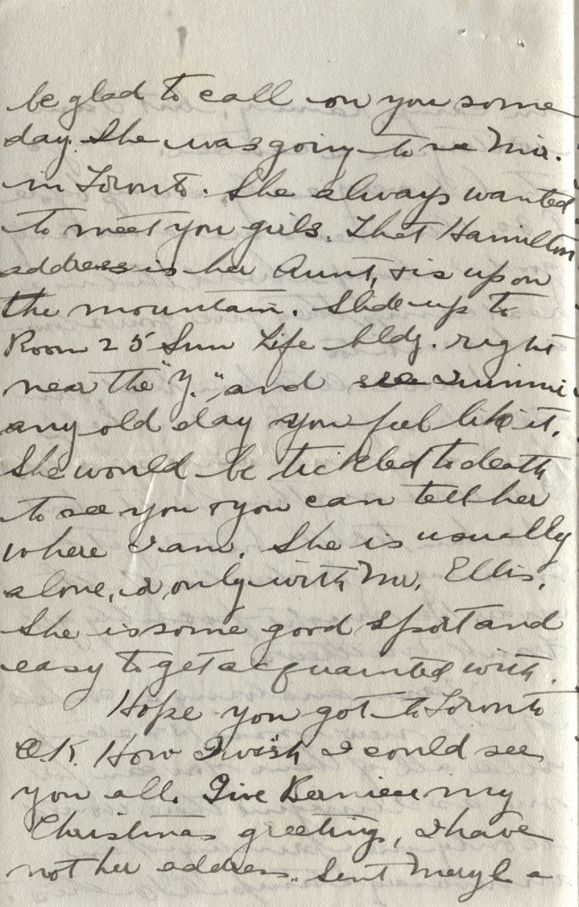 be glad to call on you some
day. She was going to see Mir.
in Toronto. She always wanted
to meet you girls. That Hamilton
address is her Aunt, & is up on
the mountain. Slide up to
Room 25 Sun Life bldg. right
near the "Y." and see
any old day you feel like it.
She would be tickled to death
to see you & you can tell her
where I am. She is usually
alone, or only with Mr. Ellis.
She is some good sport and
easy to get acquainted with.
Hope you got to Toronto
O.K. How I wish I could see
you all. Give my
Christmas greeting, I have
not her address. Sent a